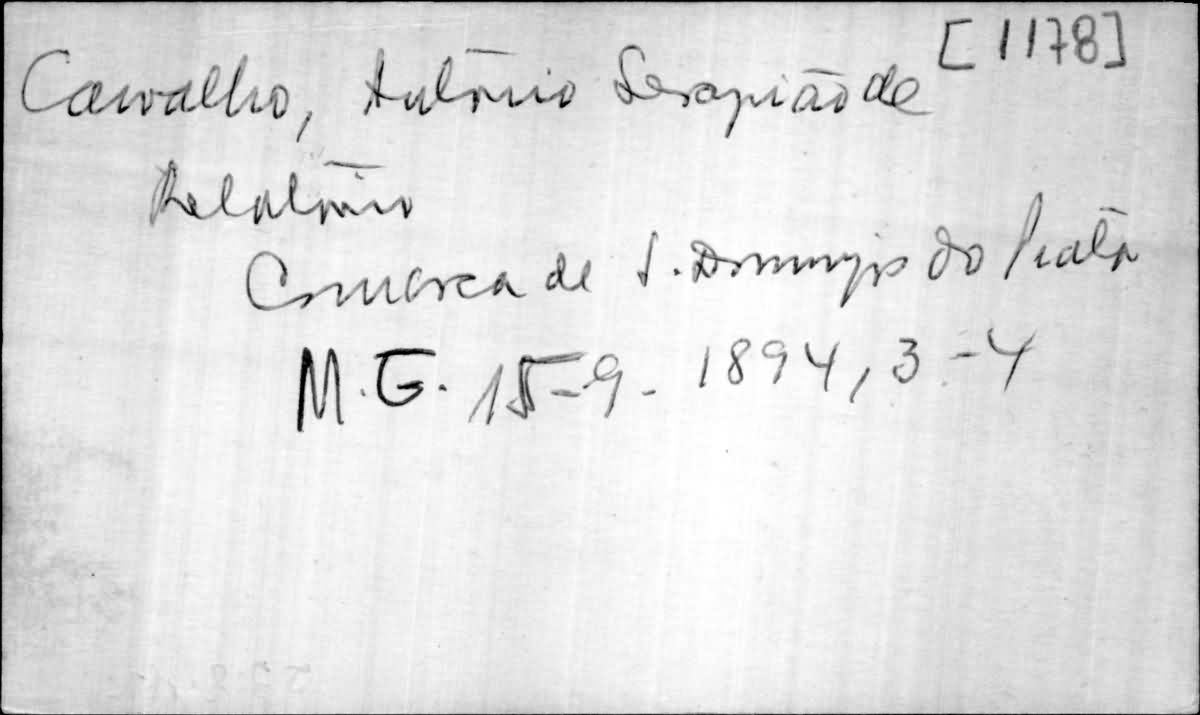 [1178]
Carvalho, António Serapião de
Relatório
Comarca de S. Domingos do Prata
M. G. 15-9-1894, 3-4